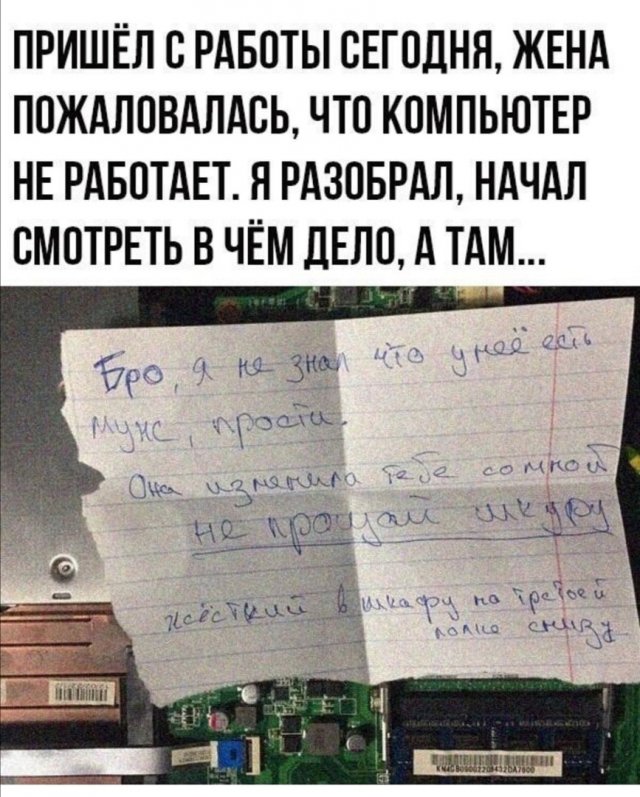 ПРИШЁЛ С РАБОТЫ СЕГОДНЯ, ЖЕНА
ПОЖАЛОВАЛАСЬ, ЧТО КОМПЬЮТЕР
НЕ РАБОТАЕТ. Я РАЗОБРАЛ, НАЧАЛ
СМОТРЕТЬ В ЧЁМ ДЕЛО, А ТАМ...
Бро, я не знал что у неё есть
муж, прости.
Она изменила тебе со мной
не прощай шкуру
жёсткий в шкафу на третьей
полке снизу